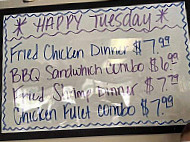 * HAPPY Tuesday *
Fried Chicken Dinner $7.99
BBQ Sandwhich Combo $6.99
Fried Shrimp Dinner $7.79
Chicken Filet Combo $7.99